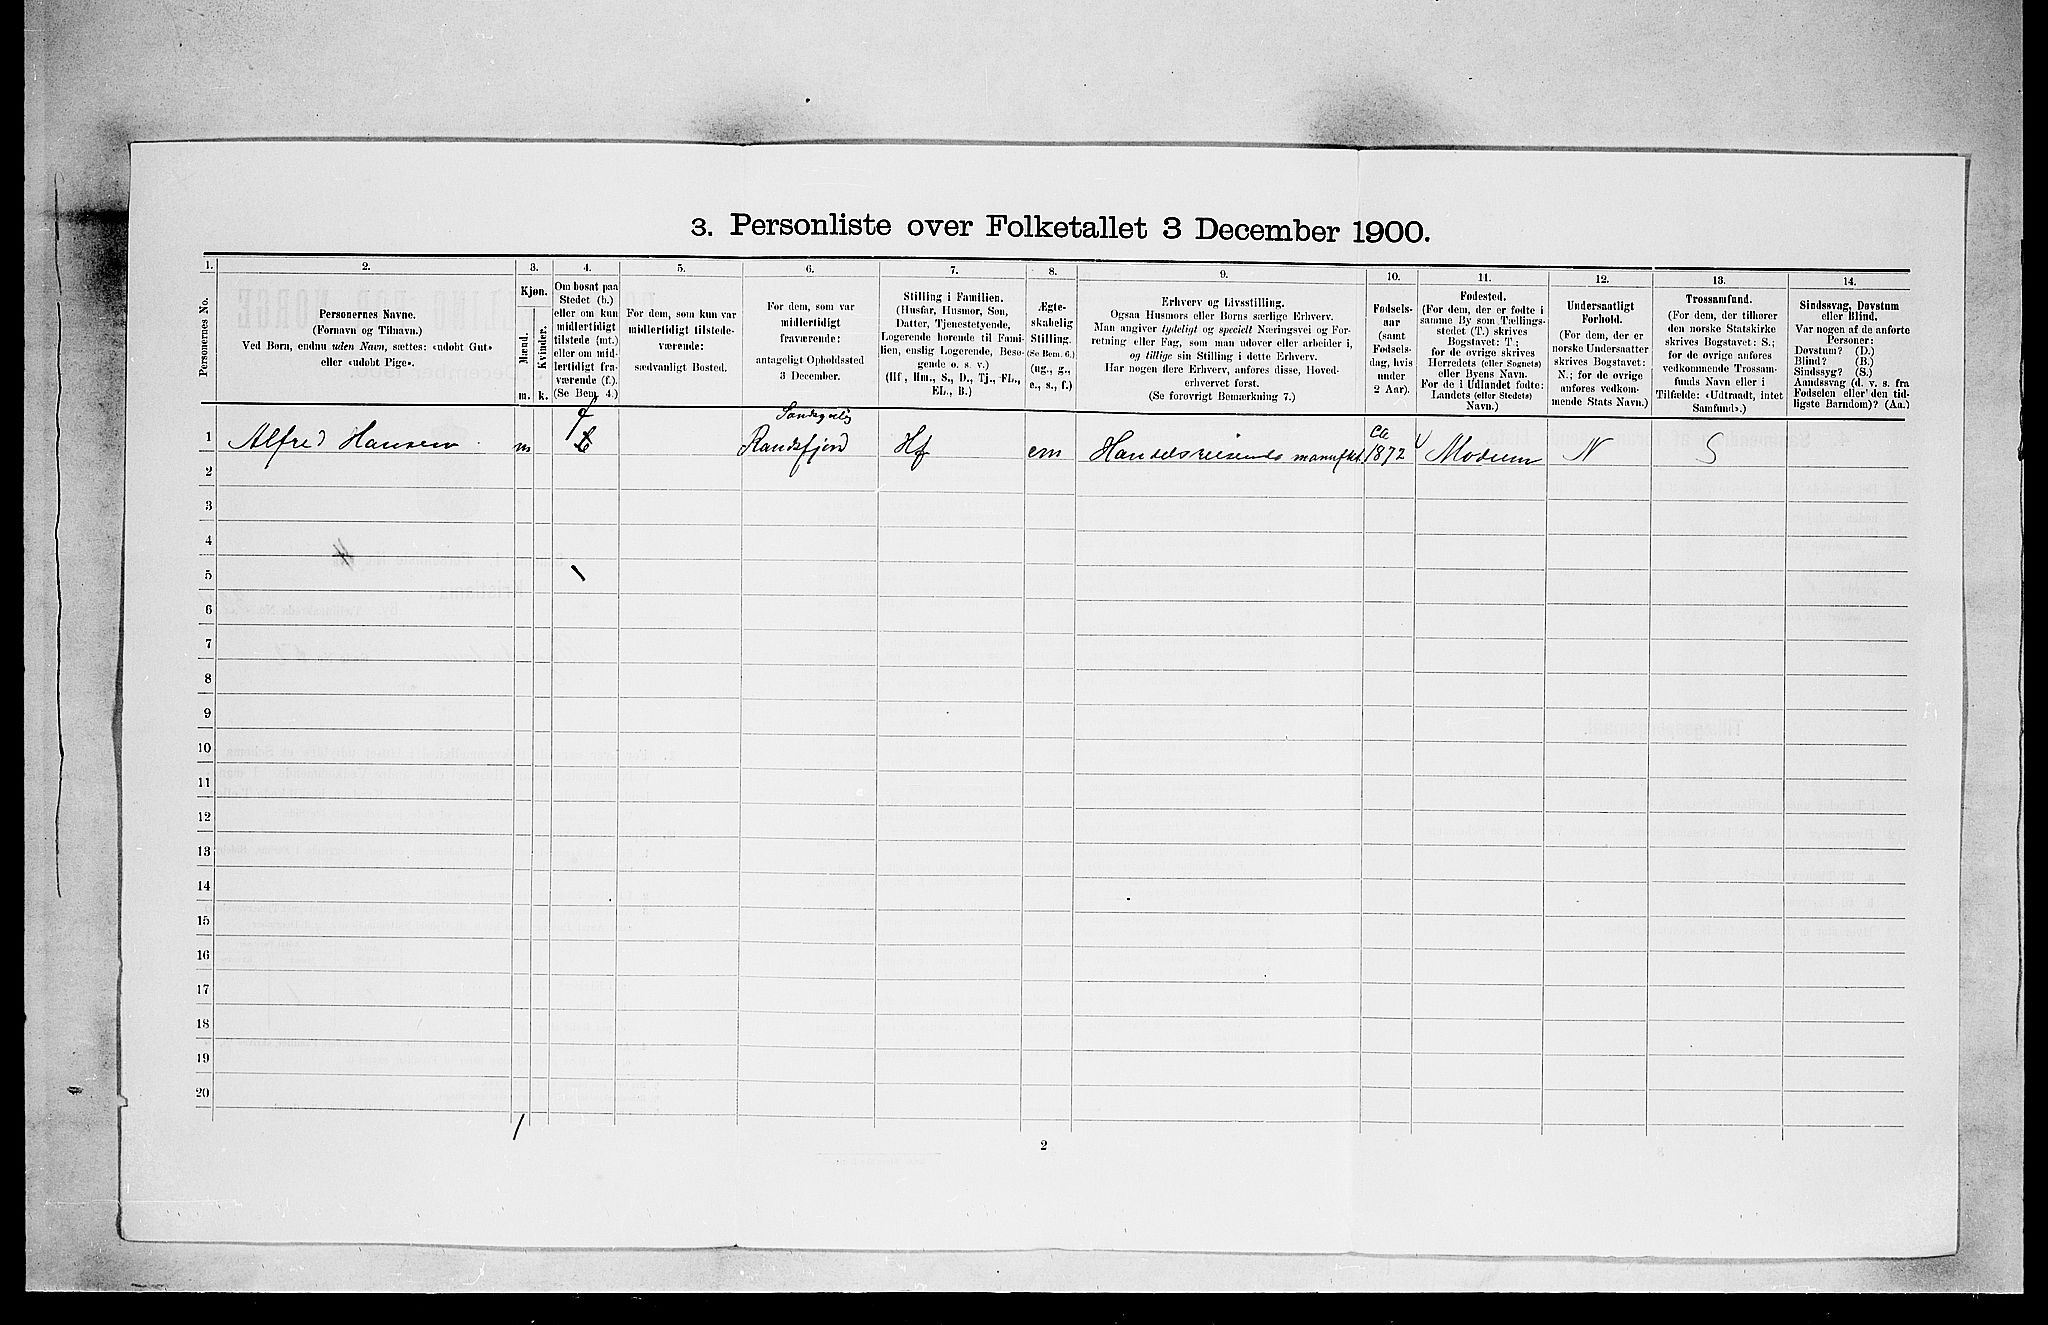 3. Personliste over Folketallet 3 December 1900.
1.
Personernes No.
2.
Personernes Navne.
(Fornavn og Tilnavn.)
Ved Børn, endnu uden Navn, sættes: «udøbt Gut»
eller «udøbt Pige».
3.
Kjøn.
Mænd.
Kvinder.
m.
k.
4.
Om bosat paa
Stedet (b.)
eller om kun
midlertidigt
tilstede (mt.)
eller om mid-
lertidigt fra-
værende (f.).
(Se Bem. 4.)
5.
For dem, som kun var
midlertidigt tilstede-
værende:
sædvanligt Bosted.
6.
For dem, som var
midlertidigt
fraværende:
antageligt Opholdssted
3 December.
7.
Stilling i Familien.
(Husfar, Husmor, Søn,
Datter, Tjenestetyende,
Logerende hørende til Fami-
lien, enslig Logerende, Besø-
gende o. s. v.)
(Hf., Hm., S., D., Tj., FL.,
EL., B.)
8.
Ægte-
skabelig
Stilling.
(Se Bem. 6.)
(ug., g.,
e., s., f.)
9.
Erhverv og Livsstilling.
Ogsaa Husmors eller Børns særlige Erhverv.
Man angiver tydeligt og specielt Næringsvei og For-
retning eller Fag, som man udøver eller arbeider i,
og tillige sin Stilling i dette Erhverv.
Har nogen flere Erhverv, anføres disse, Hoved-
erhvervet først.
(Se forøvrigt Bemærkning 7.)
10.
Fødsels-
aar
(samt
Fødsels-
dag, hvis
under
2 Aar).
11.
Fødested.
(For dem, der er fødte i
samme By som Tællings-
stedet (T.) skrives
Bogstavet: T;
for de øvrige skrives
Herredets (eller Sognets)
eller Byens Navn.
For de i Udlandet fødte:
Landets (eller Stedets)
Navn.)
12.
Undersaatligt
Forhold.
(For dem, der er
norske Undersaatter
skrives Bogstavet:
N.; for de øvrige
anføres vedkom-
mende Stats Navn.)
13.
Trossamfund.
(For dem, der tilhører
den norske Statskirke
skrives Bogstavet: S.;
for de øvrige anføres
vedkommende Trossam-
funds Navn eller i
Tilfælde: «Udtraadt, intet
Samfund».)
14.
Sindssvag, Døvstum
eller Blind.
Var nogen af de anførte
Personer:
Døvstum? (D.)
Blind? (B.)
Sindssyg? (S.)
Aandssvag (d. v. s. fra
Fødselen eller den tid-
ligste Barndom)? (Aa.)
f
Sandsynlig
ca
1 Alfred Hansen m b Randsfjord Hf em Handelsreisende manufkt. 1872 Modum N S
2
3
4
4
5
6
7
8
9
10
11
12
13
14
15
16
17
18
19
20
1
2